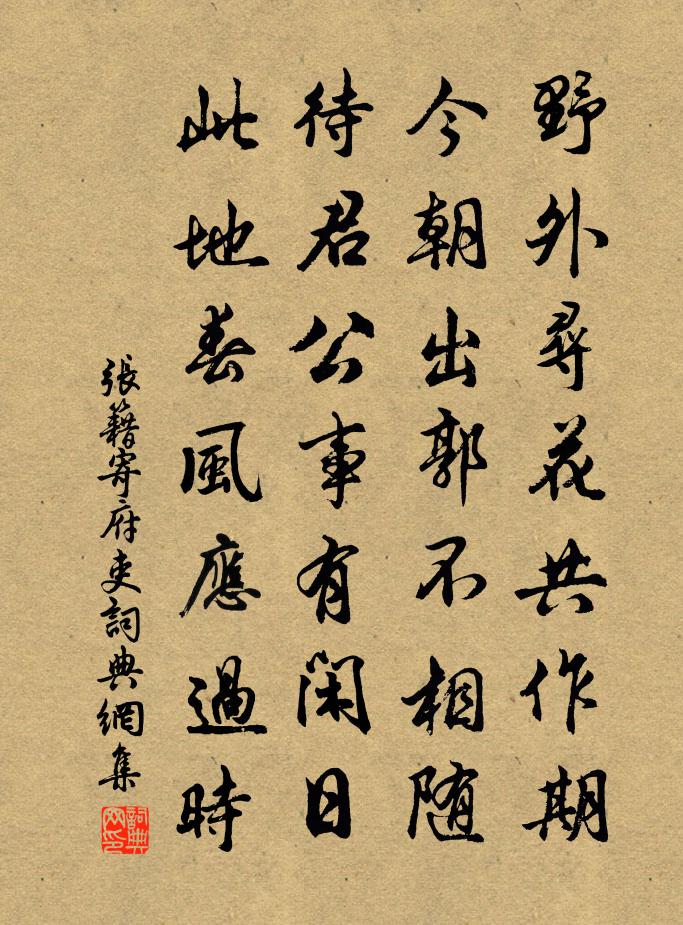 野外尋花共作期
今朝出郭不相随
待君公事有閑日
此地春風應過時
張籍寄府吏詞典網集
詞典網印